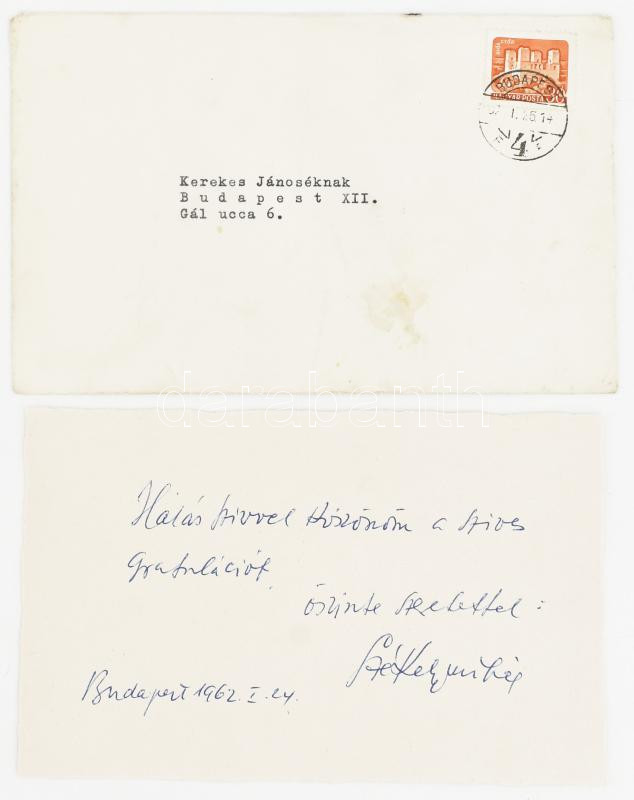 BUDAPEST
MAGYAR POSTA
4
Kerekes Jánoséknak
Budapest XII.
Gál ucca 6.
darabanth
Hálás szivvel köszönöm a szives
gratulációt
őszinte szeretettel:
Székelymihály
Budapest 1962. I. 24.